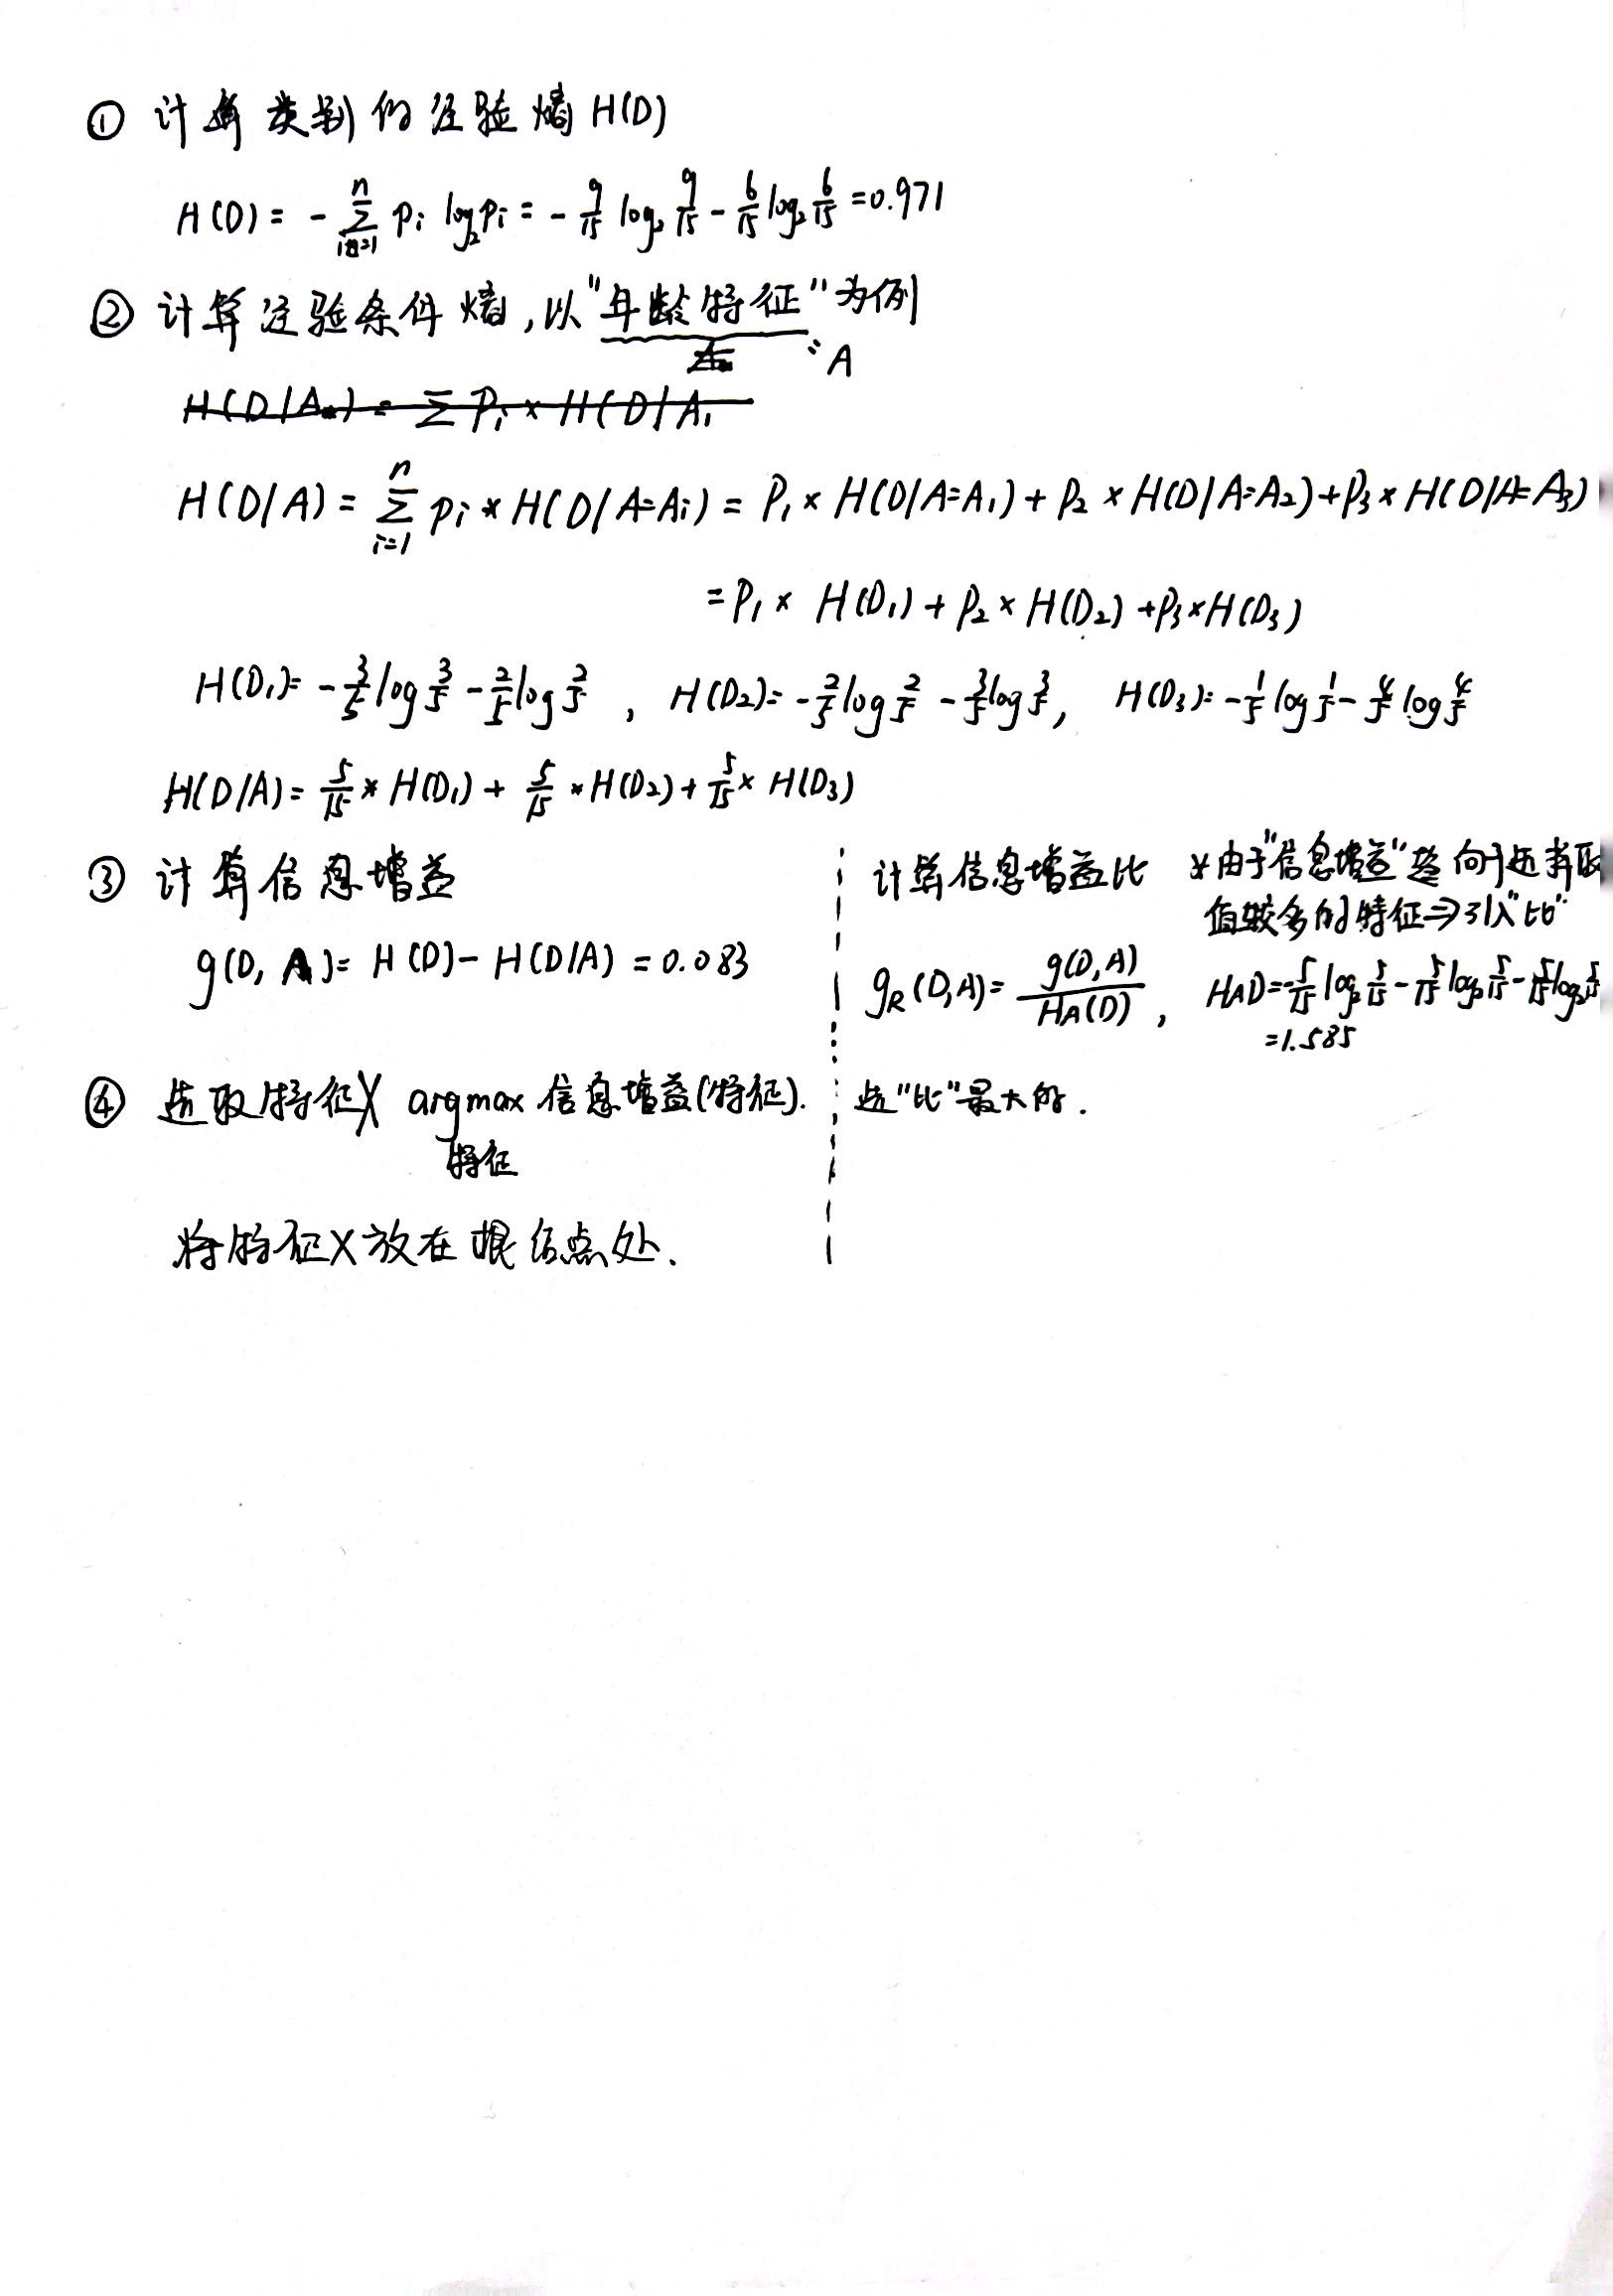 ① 计算类别的经验熵 H(D)
H(D) = - \sum_{i=1}^{n} p_i log_2 p_i = - \frac{9}{15} log_2 \frac{9}{15} - \frac{6}{15} log_2 \frac{6}{15} = 0.971
② 计算经验条件熵,以"年龄特征"为例
:A
H(D|A) = \sum_{i=1}^{n} p_i × H(D|A=A_i) = P_1 × H(D|A=A_1) + P_2 × H(D|A=A_2) + P_3 × H(D|A=A_3)
= P_1 × H(D_1) + P_2 × H(D_2) + P_3 × H(D_3)
H(D_1) = - \frac{3}{5} log \frac{3}{5} - \frac{2}{5} log \frac{2}{5} , H(D_2) = - \frac{2}{5} log \frac{2}{5} - \frac{3}{5} log \frac{3}{5}, H(D_3) = - \frac{1}{5} log \frac{1}{5} - \frac{4}{5} log \frac{4}{5}
H(D|A) = \frac{5}{15} × H(D_1) + \frac{5}{15} × H(D_2) + \frac{5}{15} × H(D_3)
③ 计算信息增益
g(D, A) = H(D) - H(D|A) = 0.083
计算信息增益比
由于"信息增益"趋向于选择取
值较多的特征⇒引入"比"
g_R(D,A) = \frac{g(D,A)}{H_A(D)} , HAD = - \frac{5}{15} log_2 \frac{5}{15} - \frac{5}{15} log_2 \frac{5}{15} - \frac{5}{15} log_2 \frac{5}{15}
= 1.585
④ 选取特征X argmax 信息增益(特征).
特征
选"比"最大的.
将特征X放在根结点处.